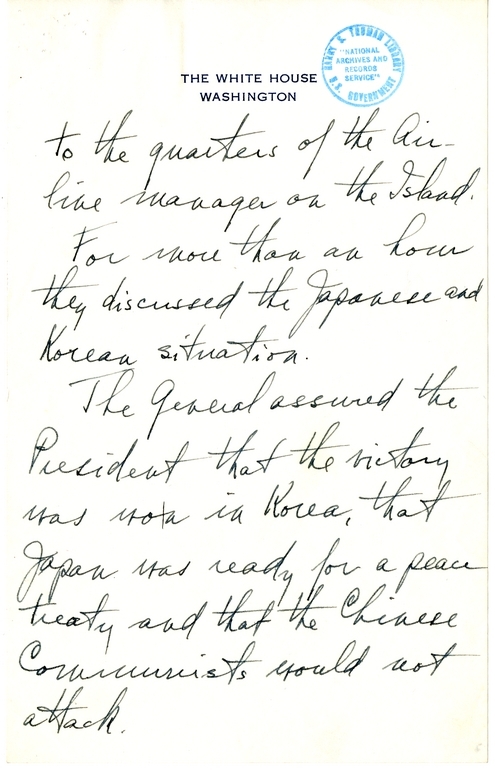 HARRY S. TRUMAN LIBRARY
"NATIONAL
ARCHIVES AND
RECORDS
SERVICE"
U.S. GOVERNMENT
THE WHITE HOUSE
WASHINGTON
to the quarters of the Air-
line manager on the Island.
For more than an hour
they discussed the Japanese and
Korean situation.
The General assured the
President that the victory
was won in Korea, that
Japan was ready for a peace
treaty and that the Chinese
Communists would not
attack.